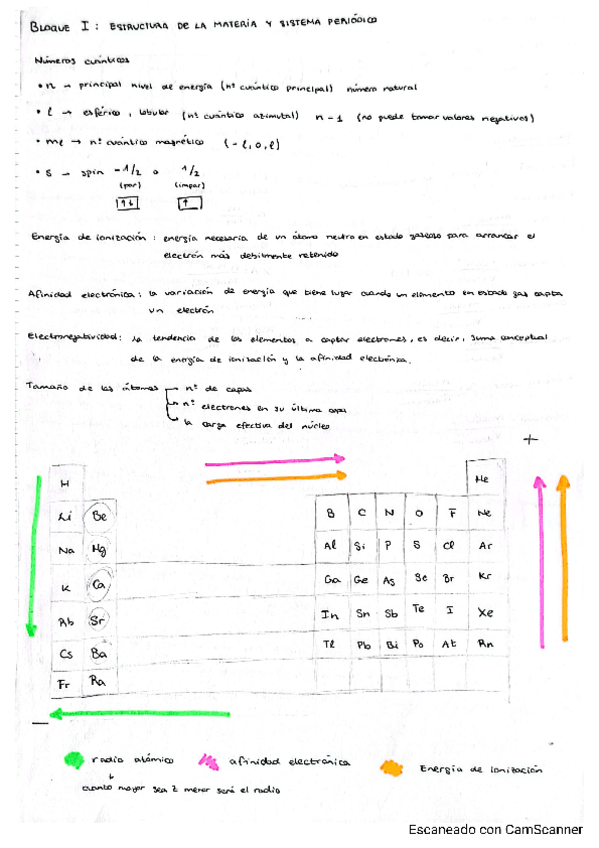 BLOQUE I: ESTRUCTURA DE LA MATERIA Y SISTEMA PERIÓDICO
Números cuánticos
• n → principal nivel de energía (nº cuántico principal) número natural
• l → esférico, lobular (nº cuántico azimutal) n - 1 (no puede tomar valores negativos)
• ml → nº cuántico magnético (-l, 0, l)
• s → spin -1/2 o 1/2
(par) (impar)
↑↓ ↑
Energía de ionización: energía necesaria de un átomo neutro en estado gaseoso para arrancar el
electrón más debilmente retenido
Afinidad electrónica: la variación de energía que tiene lugar cuando un elemento en estado gas capta
un electrón
Electronegatividad: la tendencia de los elementos a captar electrones, es decir, suma conceptual
de la energía de ionización y la afinidad electrónica.
Tamaño de los átomos
nº de capas
nº electrones en su última capa
la carga efectiva del núcleo
+
H He
Li Be B C N O F Ne
Na Mg Al Si P S Cl Ar
K Ca Ga Ge As Se Br Kr
Rb Sr In Sn Sb Te I Xe
Cs Ba Tl Pb Bi Po At Rn
Fr Ra
—
radio atómico afinidad electrónica Energía de ionización
↓
cuanto mayor sea Z menor será el radio
Escaneado con CamScanner